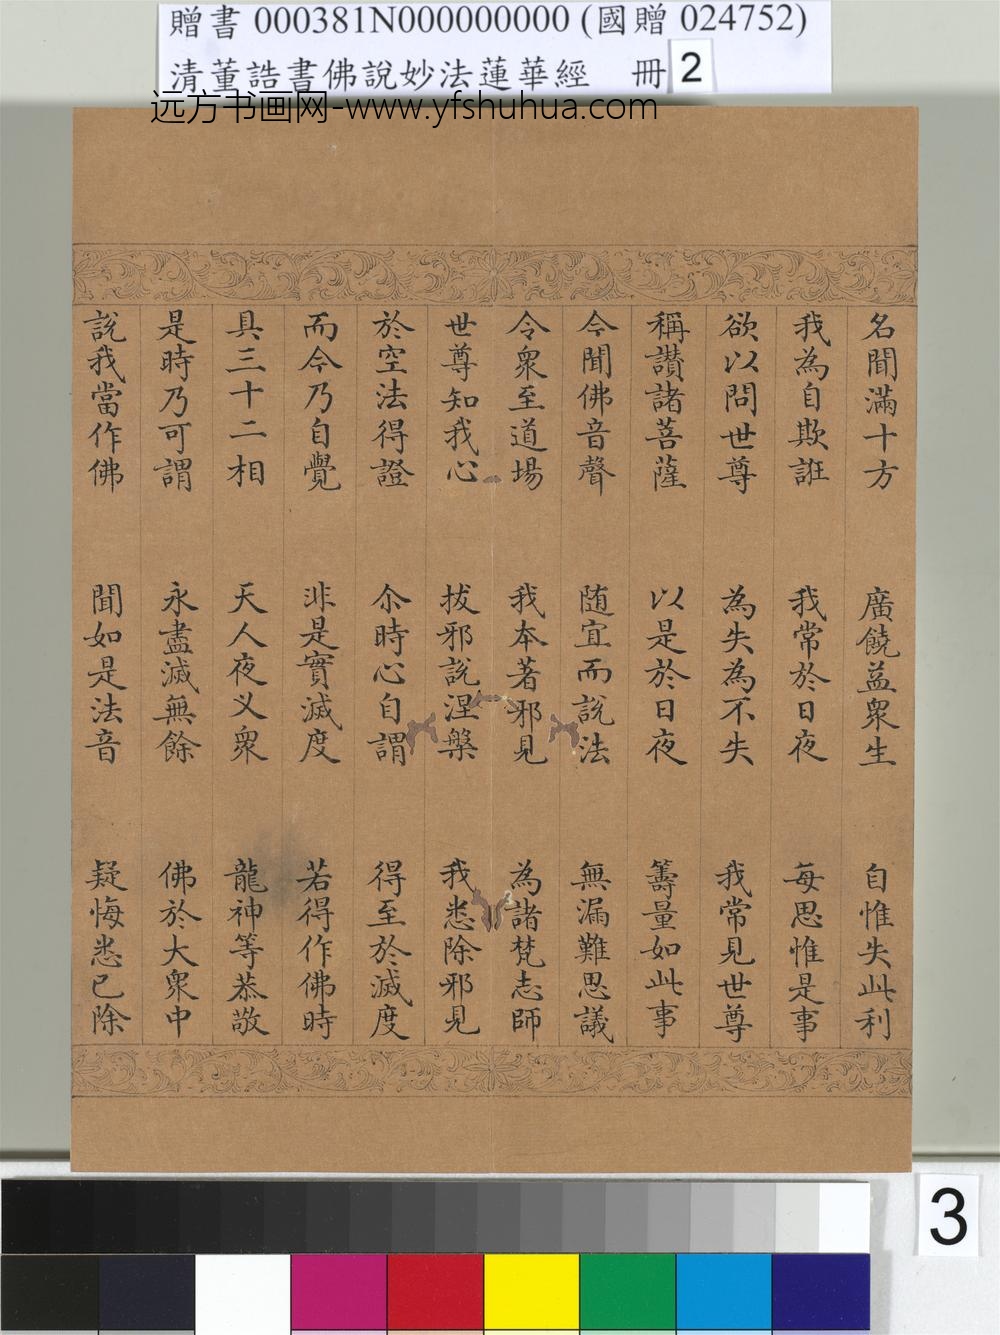 贈書 000381N000000000 (國贈 024752)
清董誥書佛說妙法蓮華經 冊 2
远方书画网-www.yfshuhua.com
名聞滿十方 廣饒益眾生 自惟失此利
我為自欺誑 我常於日夜 每思惟是事
欲以問世尊 為失為不失 我常見世尊
稱讚諸菩薩 以是於日夜 籌量如此事
今聞佛音聲 随宜而說法 無漏難思議
令衆至道場 我本著邪見 為諸梵志師
世尊知我心 拔邪說涅槃 我悉除邪見
於空法得證 尒時心自謂 得至於滅度
而今乃自覺 非是實滅度 若得作佛時
具三十二相 天人夜义衆 龍神等恭敬
是時乃可謂 永盡滅無餘 佛於大衆中
說我當作佛 聞如是法音 疑悔悉已除
3